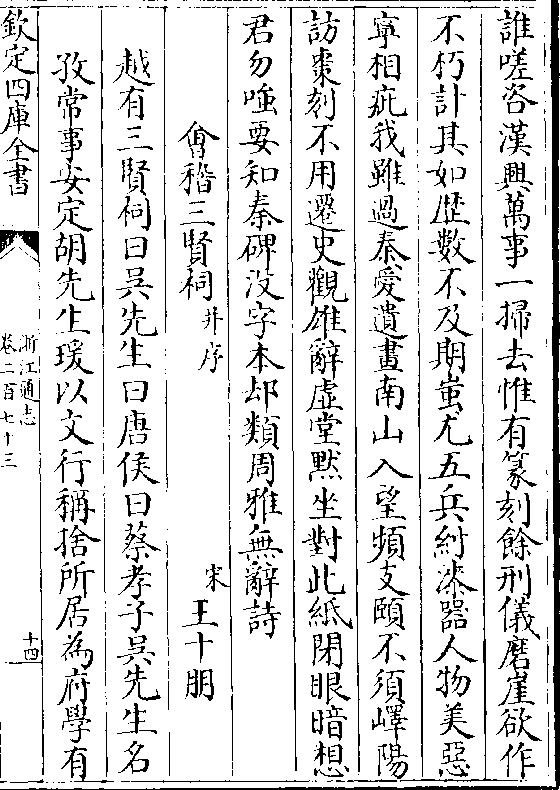 誰嗟咨漢興萬事一掃去惟有篆刻餘刑儀磨崖欲作
不朽計其如歴數不及期蚩尤五兵紂漆器人物美惡
寧相疵我雖過秦愛遺畫南山入望頻支頤不須嶧陽
訪棗刻不用遷史觀雄辭虚堂黙坐對此紙閉眼暗想
君勿嗤要知秦碑没字本却類周雅無辭詩
會稽三賢祠并序 宋王十朋
越有三賢祠曰吳先生曰唐侯曰蔡孝子吳先生名
孜常事安定胡先生瑗以文行稱捨所居為府學有
欽定四庫全書
浙江通志
卷二百七十三
十四